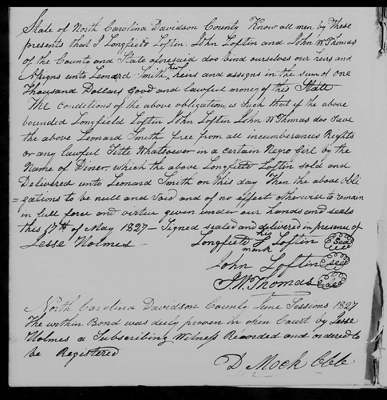 State of North Carolina Davidson County Know all men by These
presents that I Longfield Loftin John Loftin and John W Thomas
of the County and State aforesaid doo bind ourselves our heirs and
Assigns unto Leonard Smith his heirs and assigns in the sum of one
Thousand Dollars Good and Lawful money of this State
The Conditions of the above obligation is Such that if the above
bounded Longfield Loftin John Loftin John W Thomas doo Save
the above Leonard Smith free from all incumbrances Rights
or any Lawful Title Whatsoever in a certain Negro Girl by the
Name of Diner which the above Longfield Loftin sold and
Delivered unto Leonard Smith on this day Then the above Obli
gations to be null and Void and of no effect otherwise to remain
in full force and virtue given under our hands and seals
this 17th of May 1827 – Signed sealed and delivered in presence of
Jesse Holmes – Longfield his mark Loftin Seal
John Loftin Seal
J W Thomas Seal
North Carolina Davidson County June Sessions 1827
The within Bond was duly proven in open Court by Jesse
Holmes a Subscribing Witness Recorded and ordered to
be Registered
D Mock